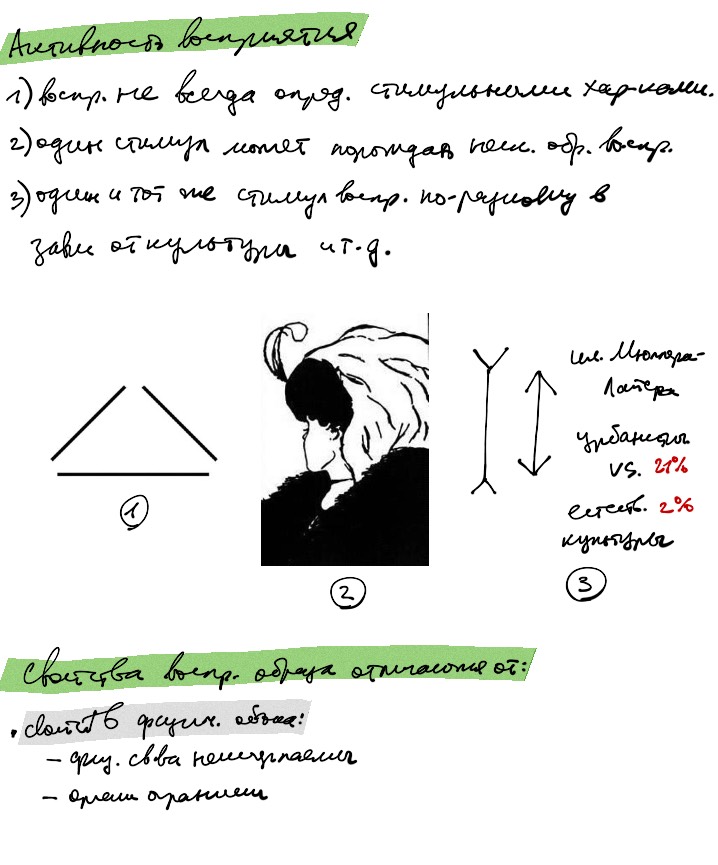 Активность восприятия
1) воспр. не всегда опред. стимульными хар-ками.
2) один стимул может порождать неск. обр. воспр.
3) один и тот же стимул воспр. по-разному в
зави от культуры и т.д.
илл. Мюллера-
Лайера
урбанисты
vs. 21%
естеств. 2%
культуры
1
2
3
Свойства воспр. образа отличаются от:
• свойств физич. объекта:
– физ. св-ва неисчерпаемы
– ограничен